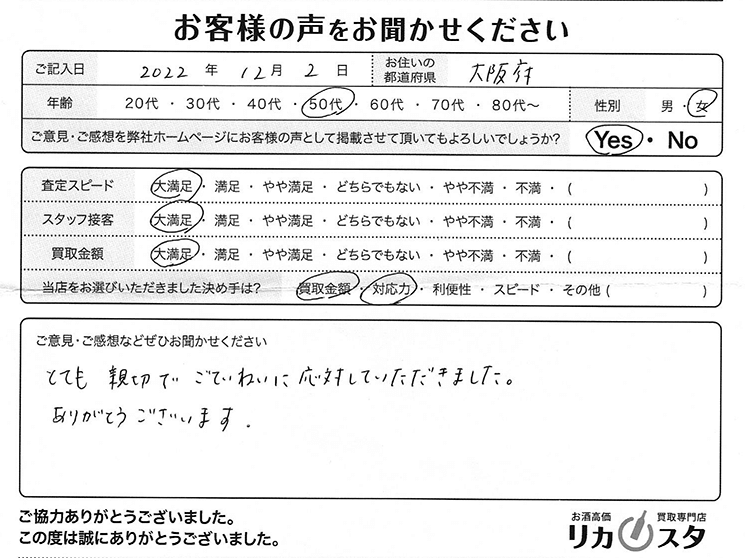 お客様の声をお聞かせください
ご記入日 2022 年 12 月 2 日 お住いの都道府県 大阪府
年齢 20代 ・ 30代 ・ 40代 ・ 50代 ・ 60代 ・ 70代 ・ 80代〜 性別 男 ・ 女
ご意見・ご感想を弊社ホームページにお客様の声として掲載させて頂いてもよろしいでしょうか? Yes ・ No
査定スピード 大満足 ・ 満足 ・ やや満足 ・ どちらでもない ・ やや不満 ・ 不満 ・ ( )
スタッフ接客 大満足 ・ 満足 ・ やや満足 ・ どちらでもない ・ やや不満 ・ 不満 ・ ( )
買取金額 大満足 ・ 満足 ・ やや満足 ・ どちらでもない ・ やや不満 ・ 不満 ・ ( )
当店をお選びいただきました決め手は? 買取金額 ・ 対応力 ・ 利便性 ・ スピード ・ その他 ( )
ご意見・ご感想などぜひお聞かせください
とても 親切で ごていねいに 応対していただきました。
ありがとうございます.
ご協力ありがとうございました。
この度は誠にありがとうございました。
お酒高価 買取専門店
リカスタ